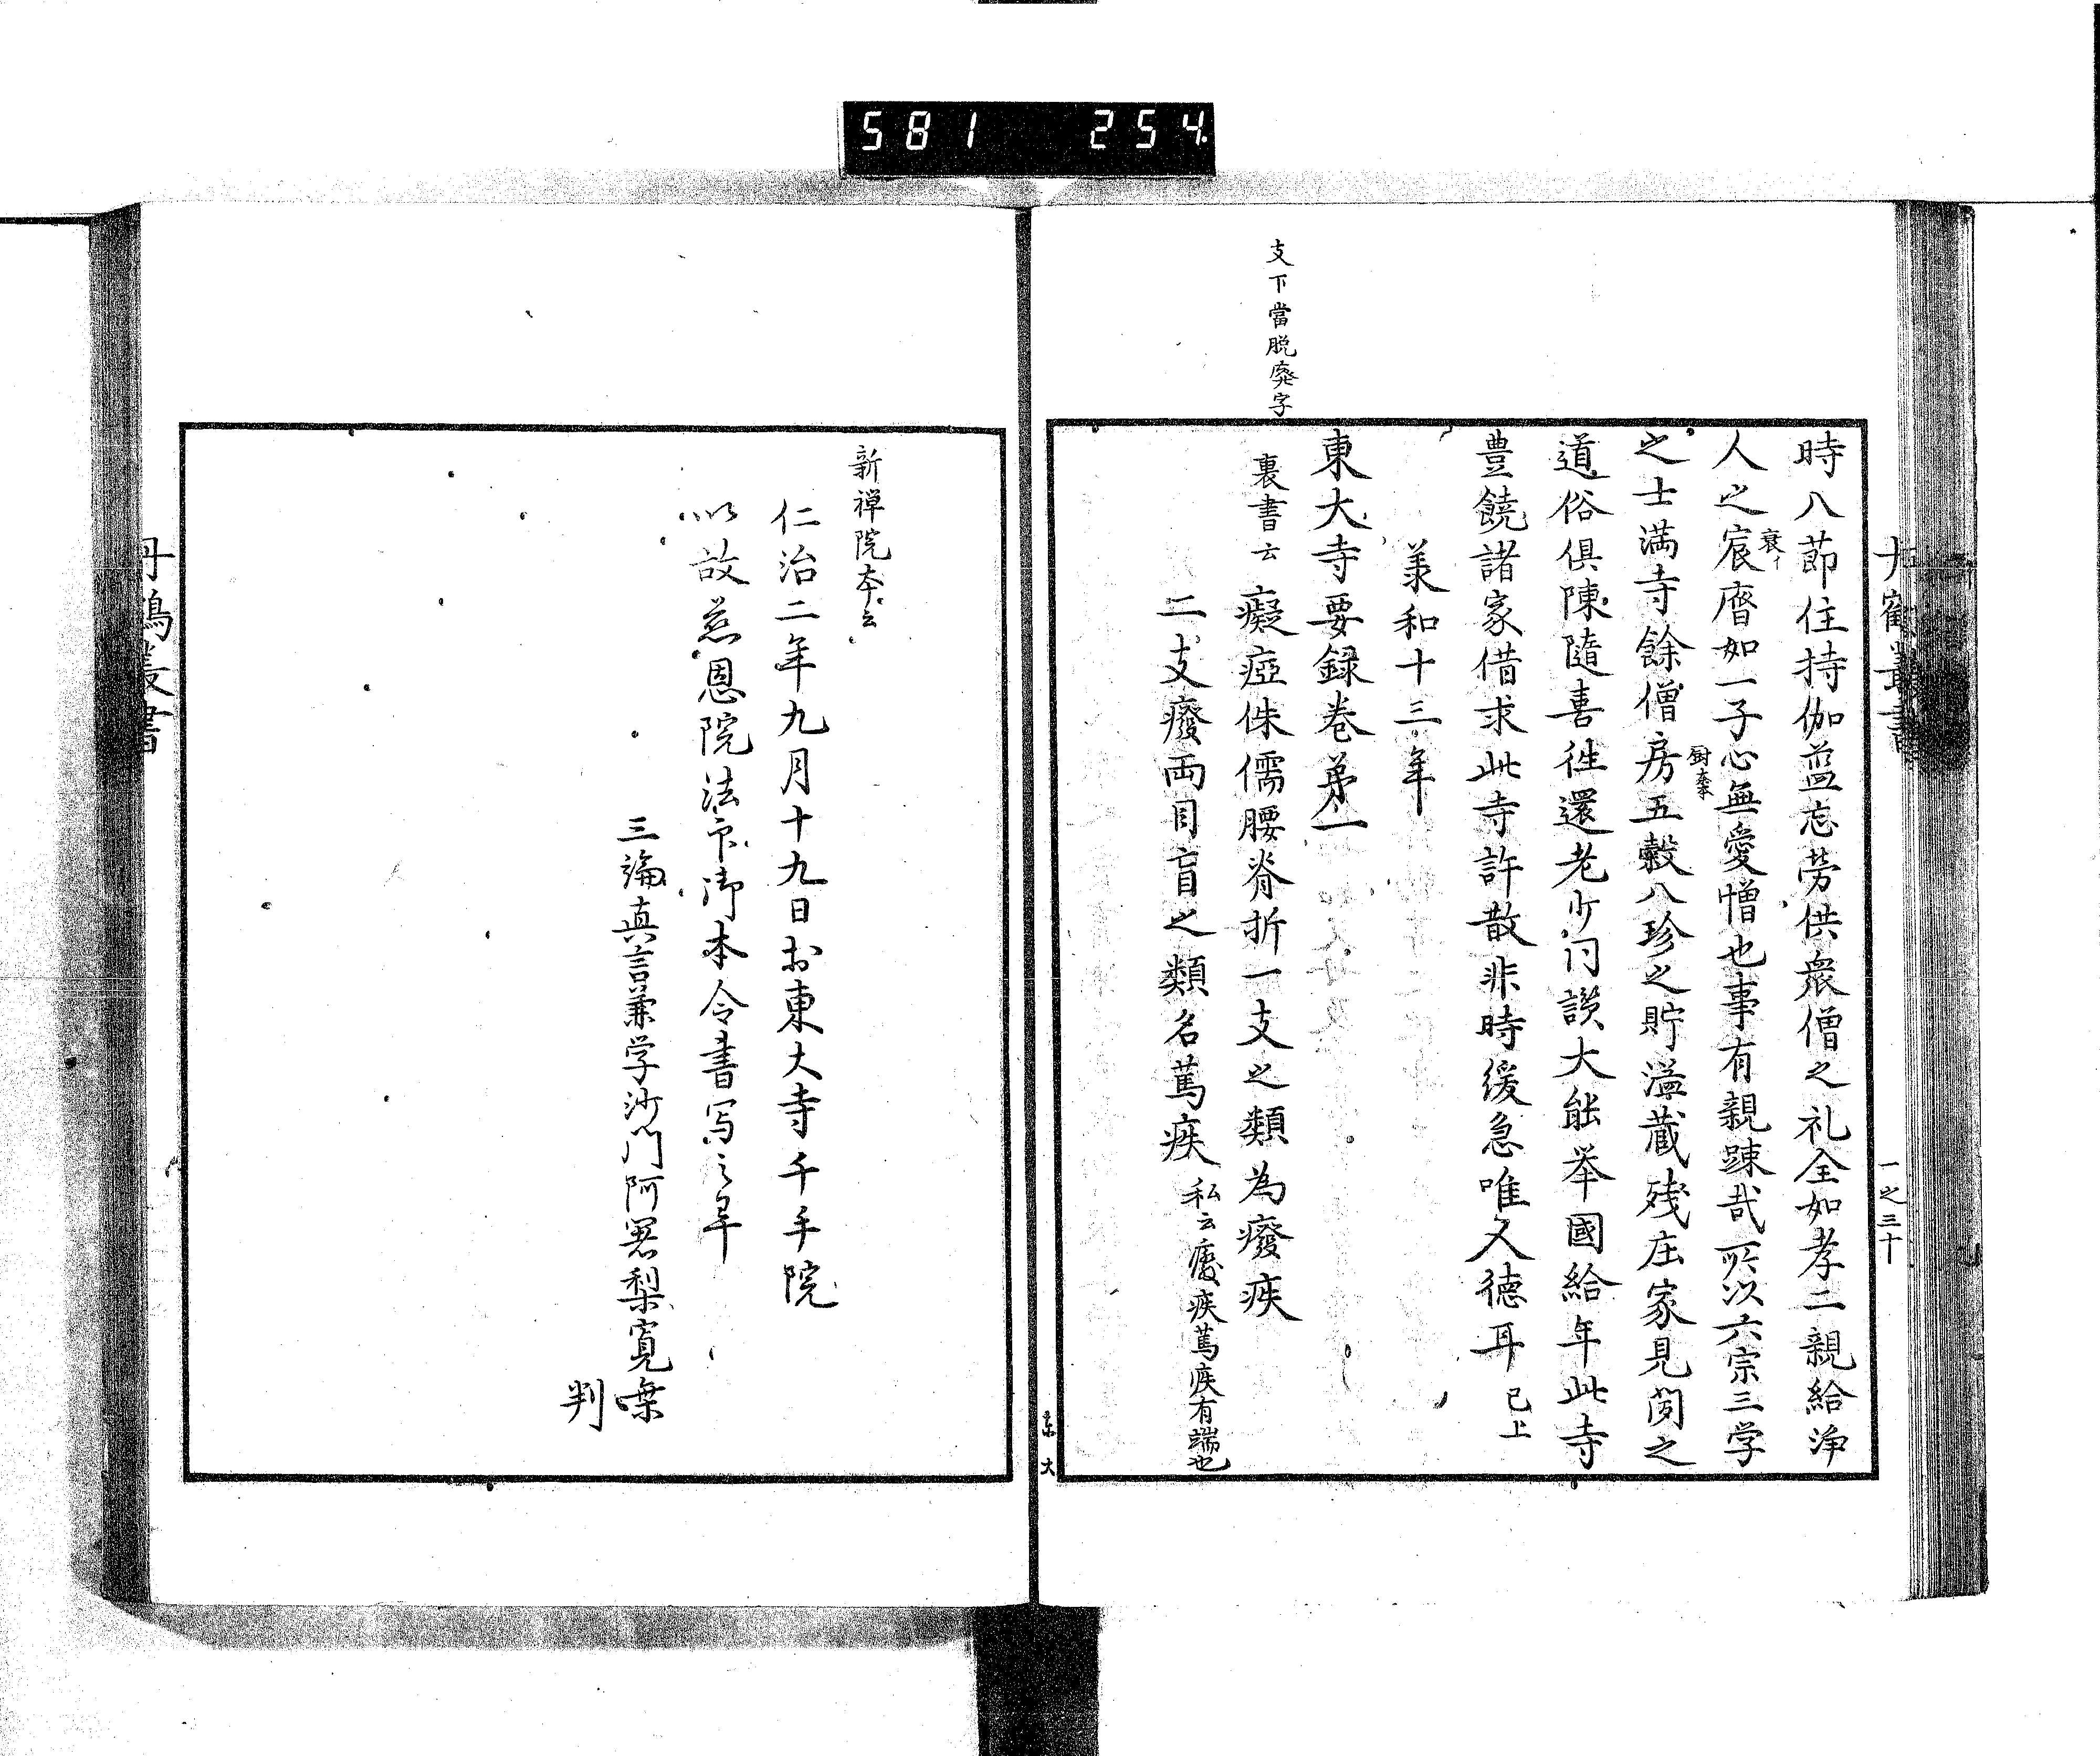 581 254
丹鶴叢書
一之三十
時八節住持伽藍忘劳供衆僧之礼全如孝二親給浄
人之宸麿如一子心無愛憎也事有親踈哉所以六宗三学
衰イ
之士満寺餘僧房五穀八珍之貯溢蔵残庄家見聞之
厨 本
道俗倶陳随喜徃還老少同讃大能挙國給年此寺
豊饒諸家借求此寺許散非時緩急唯又徳耳 已上
羕和十三年
東大寺要録巻第一
支下當脱癈字
裏書云 癡瘂侏儒腰脊折一支之類為癈疾
二支癈両目盲之類名篤疾 私云癈疾篤疾有端也
東大
新禅院本云
仁治二年九月十九日於東大寺千手院
以故慈恩院法印御本令書写之畢
三論真言兼学沙門阿闍梨寛乗
判
丹鶴叢書